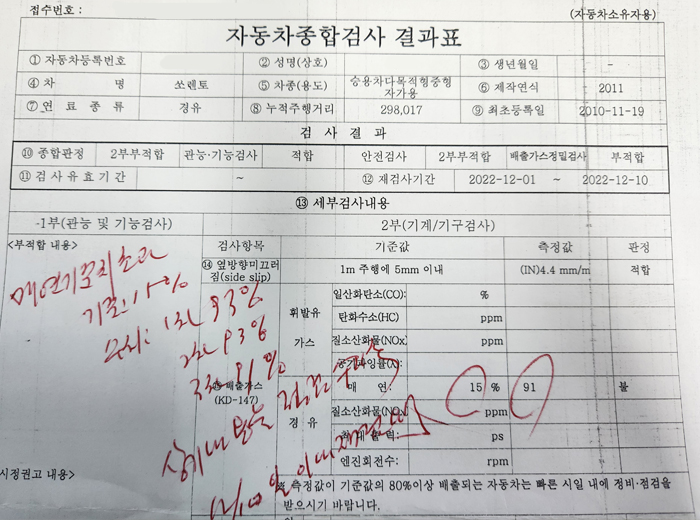 접수번호 :
(자동차소유자용)
자동차종합검사 결과표
① 자동차등록번호 ② 성명(상호) ③ 생년월일 -
④ 차 명 쏘렌토 ⑤ 차종(용도) 승용차다목적형중형 자가용 ⑥ 제작연식 2011
⑦ 연 료 종 류 경유 ⑧ 누적주행거리 298,017 ⑨ 최초등록일 2010-11-19
검 사 결 과
⑩ 종합판정 2부부적합 관능·기능검사 적합 안전검사 2부부적합 배출가스정밀검사 부적합
⑪ 검 사 유 효 기 간 ~ ⑫ 재검사기간 2022-12-01 ~ 2022-12-10
⑬ 세부검사내용
-1부(관능 및 기능검사) 2부(기계/기구검사)
<부적합 내용> 검사항목 기준값 측정값 판정
⑭ 옆방향미끄러짐(side slip) 1m 주행에 5mm 이내 (IN)4.4 mm/m 적합
매연기준치초과
기준: 15%
수치: 1차 93%
2차 93%
3차 91%
휘발유 가스 일산화탄소(CO): %
탄화수소(HC) ppm
질소산화물(NOx) ppm
공기과잉률(λ):
배출가스 (KD-147) 경 유 매 연: 15 % 91 불
질소산화물(NOx) ppm
ps
엔진회전수: rpm
상기내용 점검
12/10일 이내
시정권고 내용>
※ 측정값이 기준값의 80%이상 배출되는 자동차는 빠른 시일 내에 정비·점검을
받으시기 바랍니다.